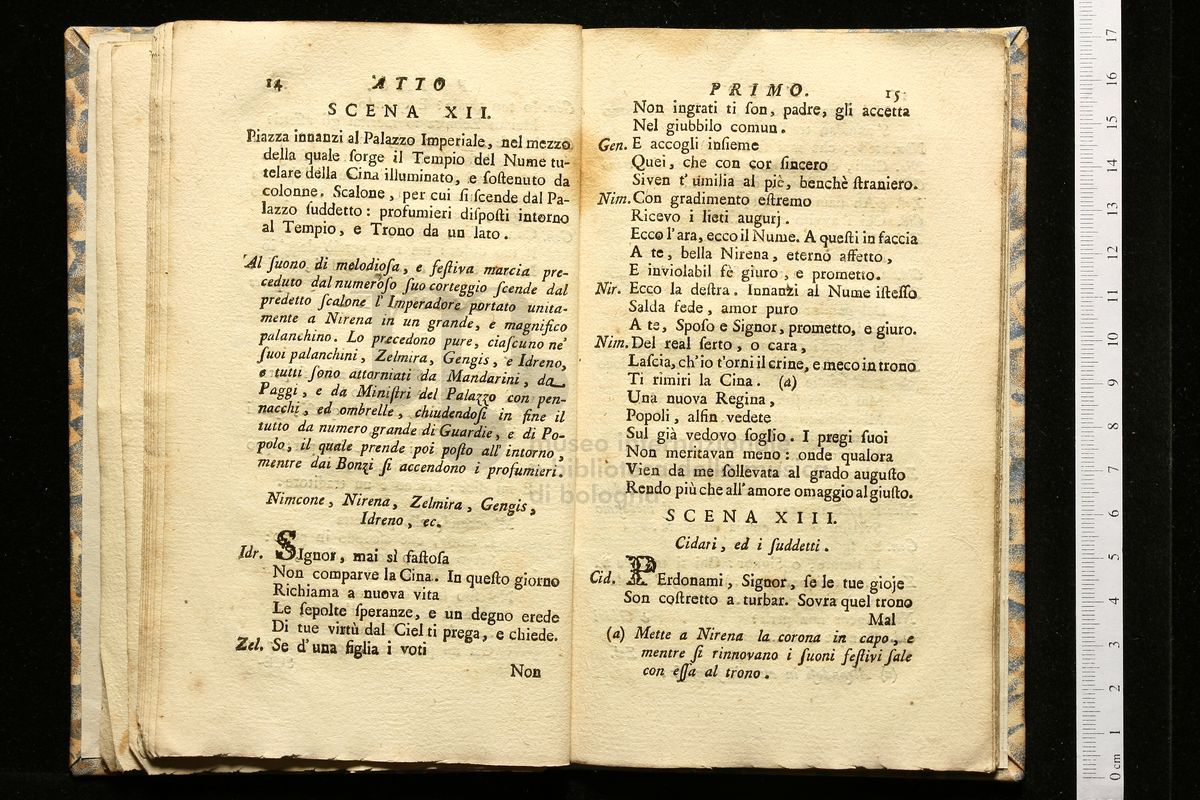 14 ATTO
SCENA XII.
Piazza innanzi al Palazzo Imperiale, nel mezzo
della quale ſorge il Tempio del Nume tu-
telare della Cina illuminato, e ſoſtenuto da
colonne. Scalone, per cui ſi ſcende dal Pa-
lazzo ſuddetto: profumieri diſpoſti intorno
al Tempio, e Trono da un lato.
Al ſuono di melodioſa, e feſtiva marcia pre-
ceduto dal numeroſo ſuo corteggio ſcende dal
predetto ſcalone l'Imperadore portato unita-
mente a Nirena in un grande, e magnifico
palanchino. Lo precedono pure, ciaſcuno ne'
ſuoi palanchini, Zelmira, Gengis, e Idreno,
e tutti ſono attorniati da Mandarini, da
Paggi, e da Miniſtri del Palazzo con pen-
nacchi, ed ombrelle, chiudendoſi in fine il
tutto da numero grande di Guardie, e di Po-
polo, il quale prende poi poſto all'intorno,
mentre dai Bonzi ſi accendono i profumieri.
Nimcone, Nirena, Zelmira, Gengis,
Idreno, ec.
Idr. SIgnor, mai sì faſtoſa
Non comparve la Cina. In queſto giorno
Richiama a nuova vita
Le ſepolte ſperanze, e un degno erede
Di tue virtù dal Ciel ti prega, e chiede.
Zel. Se d'una figlia i voti
Non
PRIMO. 15
Non ingrati ti ſon, padre, gli accetta
Nel giubbilo comun.
Gen. E accogli inſieme
Quei, che con cor ſincero
Siven t'umilia al piè, benchè ſtraniero.
Nim. Con gradimento eſtremo
Ricevo i lieti augurj.
Ecco l'ara, ecco il Nume. A queſti in faccia
A te, bella Nirena, eterno affetto,
E inviolabil fè giuro, e prometto.
Nir. Ecco la deſtra. Innanzi al Nume iſteſſo
Salda fede, amor puro
A te, Spoſo e Signor, prometto, e giuro.
Nim. Del real ſerto, o cara,
Laſcia, ch'io t'orni il crine, e meco in trono
Ti rimiri la Cina. (a)
Una nuova Regina,
Popoli, alfin vedete
Sul già vedovo ſoglio. I pregi ſuoi
Non meritavan meno: onde qualora
Vien da me ſollevata al grado auguſto
Rendo più che all'amore omaggio al giuſto.
SCENA XIII.
Cidari, ed i ſuddetti.
Cid. PErdonami, Signor, ſe le tue gioje
Son coſtretto a turbar. Sovra quel trono
Mal
(a) Mette a Nirena la corona in capo, e
mentre ſi rinnovano i ſuoni feſtivi ſale
con eſſa al trono.
museo internazionale
e biblioteca della musica
di bologna
0 cm 1 2 3 4 5 6 7 8 9 10 11 12 13 14 15 16 17